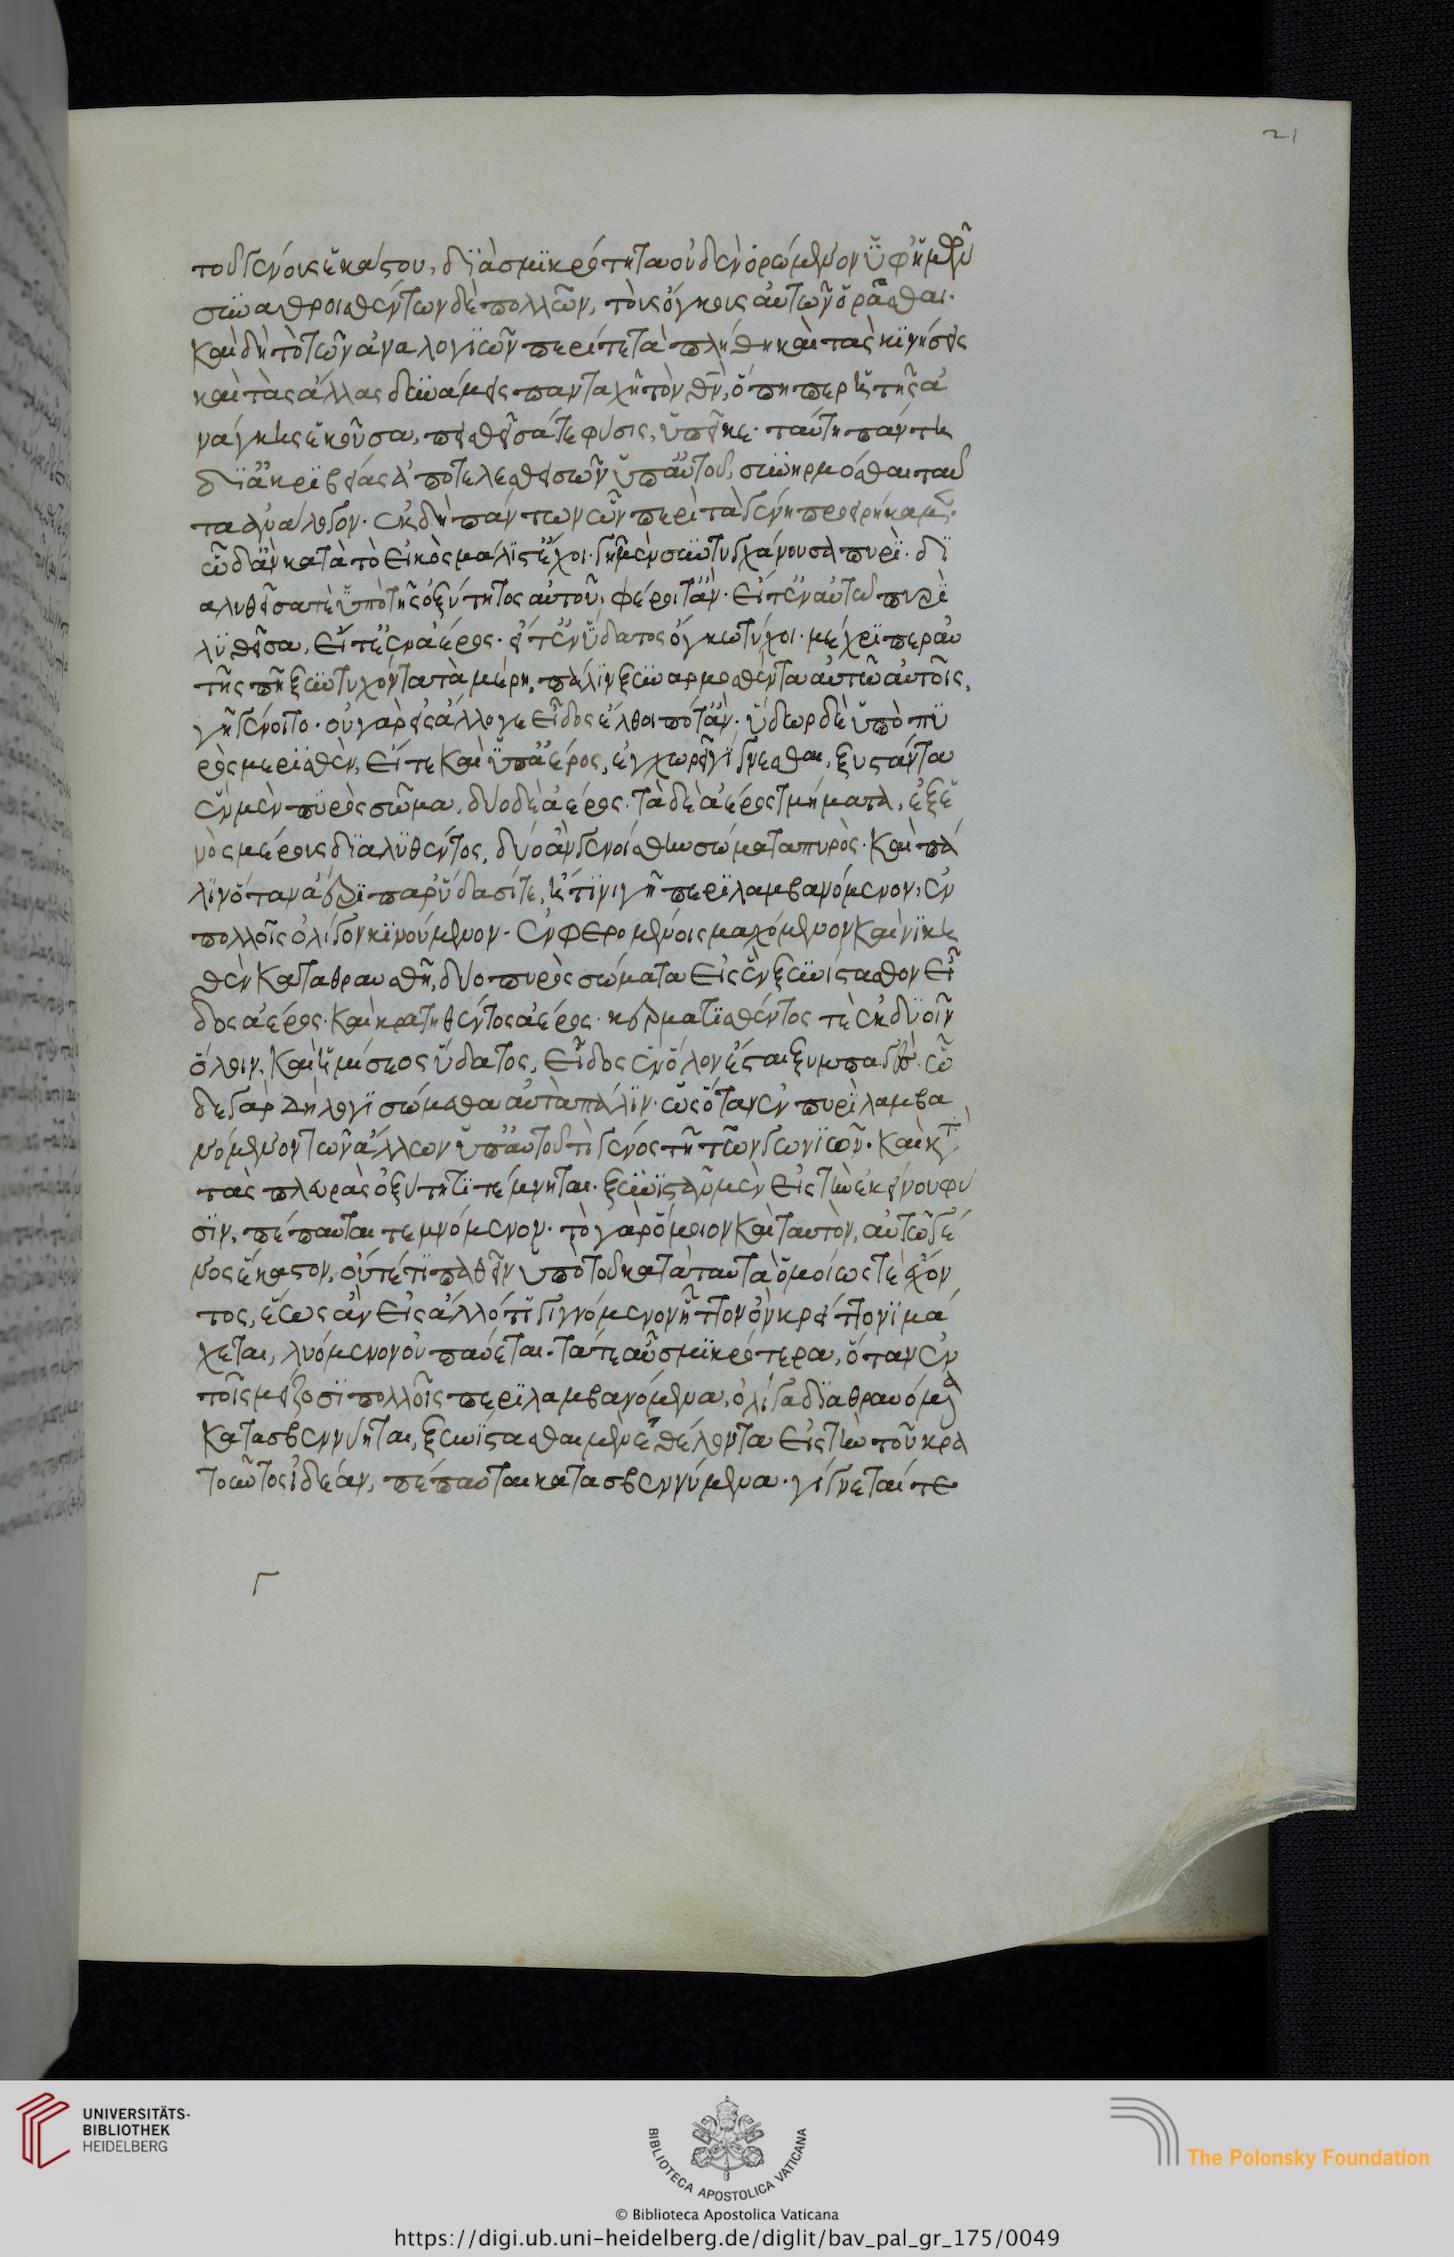 τοῦ γένους ἑκάστου, διὰ σμικρότητα οὐδὲν ὁρώμενον ὑφ' ἡμῶν
συναθροισθέντων δὲ πολλῶν, τοὺς ὄγκους αὐτῶν ὁρᾶσθαι.
καὶ δὴ τὸ τῶν ἀναλογιῶν περί τε τὰ πλήθη καὶ τὰς κινήσεις
καὶ τὰς ἄλλας δυνάμεις πανταχῇ τὸν θν, ὅπῃπερ ἡ τῆς ἀ
νάγκης ἑκοῦσα, πεισθεῖσά τε φύσις, ὑπεῖκε. ταύτῃ πάντῃ
δι' ἀκριβείας ἀποτελεσθεισῶν ὑπ' αὐτοῦ, συνηρμόσθαι ταῦ
τα ἀνάλογον. ἐκ δὴ πάντων ὧν περὶ τὰ γένη προειρήκαμεν.
ὧδ' ἂν κατὰ τὸ εἰκὸς μάλιστ' ἔχοι. γῆ μὲν συντυγχάνουσα πυρί. δι
αλυθεῖσά τε ὑπὸ τῆς ὀξύτητος αὐτοῦ, φέροιτ' ἄν. εἴτ' ἐν αὐτῷ πυρὶ
λυθεῖσα, εἴτ' ἐν ἀέρος. εἴτ' ἐν ὕδατος ὄγκῳ τύχοι. μέχριπερ ἂν
τῆς πῃ ξυντυχόντα τὰ μέρη, πάλιν ξυναρμοσθέντα αὐτῶ αὐτοῖς,
γῆ γένοιτο. οὐ γὰρ εἰς ἄλλο γε εἶδος ἔλθοι ποτ' ἄν. ὕδωρ δὲ ὑπὸ πυ
ρὸς μερισθὲν, εἴτε καὶ ὑπ' ἀέρος, ἐγχωρεῖ γίγνεσθαι, ξυστάντα
ἓν μὲν πυρὸς σῶμα, δύο δὲ ἀέρος. τὰ δὲ ἀέρος τμήματα, ἐξ ἑ
νὸς μέρους διαλυθέντος, δύο ἂν γενοίσθην σώματα πυρός. καὶ πά
λιν ὅταν ἀέρι πυρ ὕδασί τε, ἤ τινι γῇ περιλαμβανόμενον, ἐν
πολλοῖς ὀλίγον κινούμενον. ἐν φερομένοις μαχόμενον καὶ νικη
θὲν καταθραυσθῇ, δύο πυρὸς σώματα εἰς ἓν ξυνίστασθον εἶ
δος ἀέρος. καὶ κρατηθέντος ἀέρος. κερματισθέντος τὲ ἐκ δυοῖν
ὅλοιν, καὶ ἡμίσεος ὕδατος, εἶδος ἓν ὅλον ἔσται ξυμπαγές. ὧ
δε γὰρ δὴ λογισώμεθα αὐτὰ πάλιν. ὡς ὅταν ἐν πυρὶ λαμβα
νόμενον τῶν ἄλλων ὑπ' αὐτοῦ τὶ γένος τῇ τῶν γωνιῶν. καὶ κατὰ
τὰς πλευρὰς ὀξύτητι τέμνηται. ξυνιστὰν μὲν εἰς τὴν ἐκείνου φύ
σιν, πέπαυται τεμνόμενον. τὸ γὰρ ὅμοιον καὶ ταυτὸν, αὐτῷ γέ
νος ἕκαστον, οὔτέ τι παθεῖν ὑπὸ τοῦ κατὰ ταυτὰ ὁμοίως τὲ ἔχον
τος, ἕως ἂν εἰς ἄλλό τι γιγνόμενον ἧττον ὂν κρείττονι μά
χεται, λυόμενον οὐ παύεται. τά τε αὖ σμικρότερα, ὅταν ἐν
τοῖς μείζοσι πολλοῖς περιλαμβανόμενα, ὀλίγα διαθραυόμενα
κατασβεννύηται, ξυνίστασθαι μὲν ἐθέλοντα εἰς τὴν τοῦ κρα
τοῦντος ἰδέαν, πέπαυται κατασβεννύμενα. γίγνεταί τε
21
https://digi.ub.uni-heidelberg.de/diglit/bav_pal_gr_175/0049
UNIVERSITÄTS-
BIBLIOTHEK
HEIDELBERG
BIBLIOTECA APOSTOLICA VATICANA
© Biblioteca Apostolica Vaticana
The Polonsky Foundation